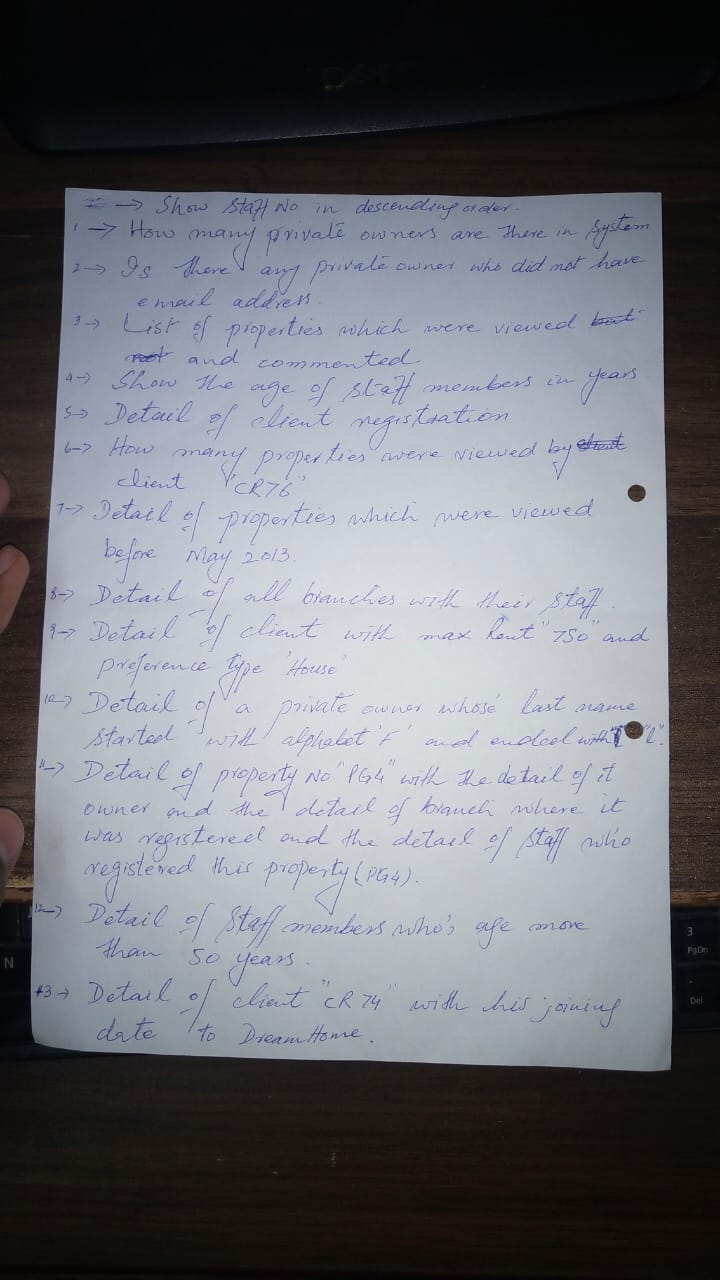 DELL
→ Show Staff No in descending order.
1 → How many private owners are there in System
2 → Is there any private owner who did not have
email address.
3 → List of properties which were viewed but
not and commented
4 → Show the age of Staff members in years
5 → Detail of client registration.
6 → How many properties were viewed by client
client "CR76"
7 → Detail of properties which were viewed
before May 2013.
8 → Detail of all branches with their Staff.
9 → Detail of client with max Rent "750" and
preference type 'House'
10 → Detail of a private owner whose last name
started with alphabet 'F' and ended with "l".
11 → Detail of property No "PG4" with the detail of it
owner and the detail of branch where it
was registered and the detail of Staff who
registered this property (PG4).
12 → Detail of Staff members who's age more
than 50 years.
13 → Detail of client "CR74" with his joining
date to DreamHome.
N
3
PgDn
.
Del